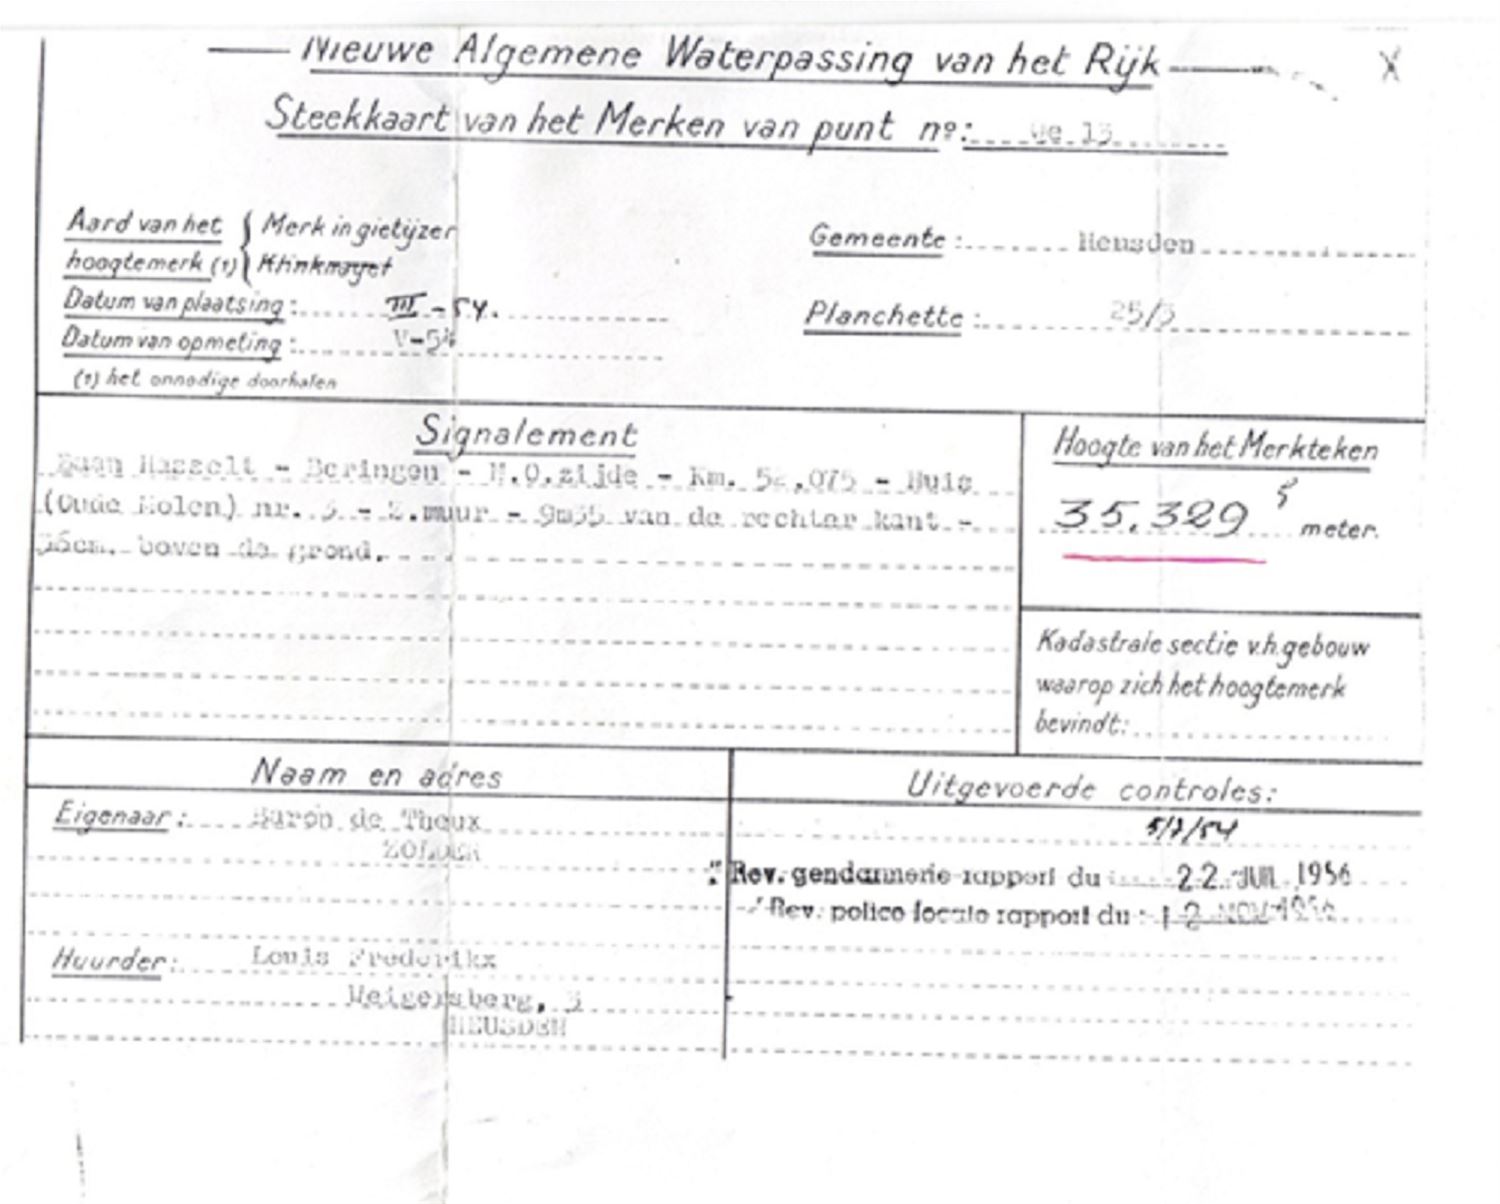 Nieuwe Algemene Waterpassing van het Rijk
Steekkaart van het Merken van punt nº: 13
Aard van het { Merk in gietijzer
hoogtemerk (1) Klinknagel
Gemeente: Heusden
Datum van plaatsing: III-54.
Planchette: 25/
Datum van opmeting: V-54
(1) het onnodige doorhalen
Signalement
Baan Hasselt - Beringen - N.O.zijde - Km. ,075 - Huis
(Oude Molen) nr. 3 - muur - van de rechter kant -
boven de grond.
Hoogte van het Merkteken
35.329 5 meter.
Kadastrale sectie v.h. gebouw
waarop zich het hoogtemerk
bevindt:
Naam en adres
Eigenaar: Baron de Theux
ZOLDER
Huurder: Louis Frederikx
3
HEUSDEN
Uitgevoerde controles:
5/7/54
Rev. gendarmerie rapport du 22 JUI 1956
Rev. police locale rapport du : 12 NOV 1956